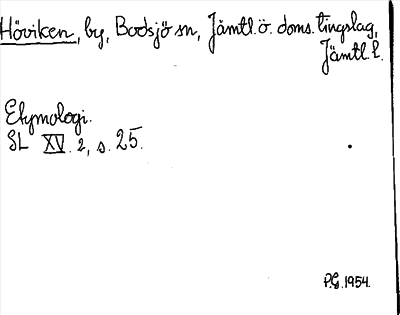 Höviken, by, Bodsjö sn, Jämtl. ö. doms. tingslag,
Jämtl. l.
Etymologi.
SL XV. 2, s. 25.
P.G. 1954.